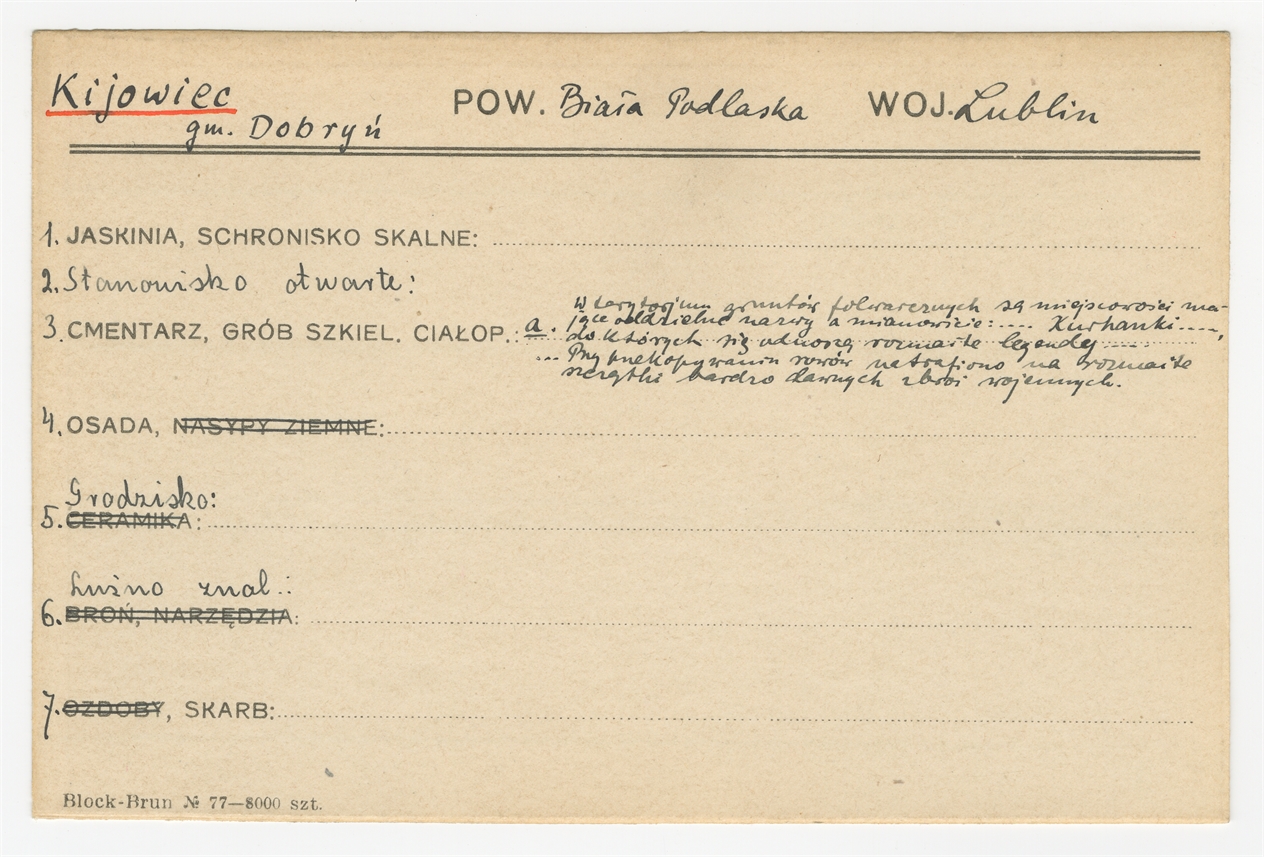 Kijowiec POW. Biała Podlaska WOJ. Lublin
gm. Dobryń
1. JASKINIA, SCHRONISKO SKALNE:
2. Stanowisko otwarte:
W terytorjum gruntów folwarcznych są miejscowości ma-
3. CMENTARZ, GRÓB SZKIEL. CIAŁOP.: a. jące oddzielne nazwy a mianowicie: .... Kurhanki ....,
do których się odnoszą rozmaite legendy ....
... Przy przekopywaniu rowów natrafiono na rozmaite
szczątki bardzo dawnych zbroi wojennych.
4. OSADA, NASYPY ZIEMNE:
Grodzisko:
5. CERAMIKA:
Luźno znal.:
6. BROŃ, NARZĘDZIA:
7. OZDOBY, SKARB:
Block-Brun № 77—8000 szt.